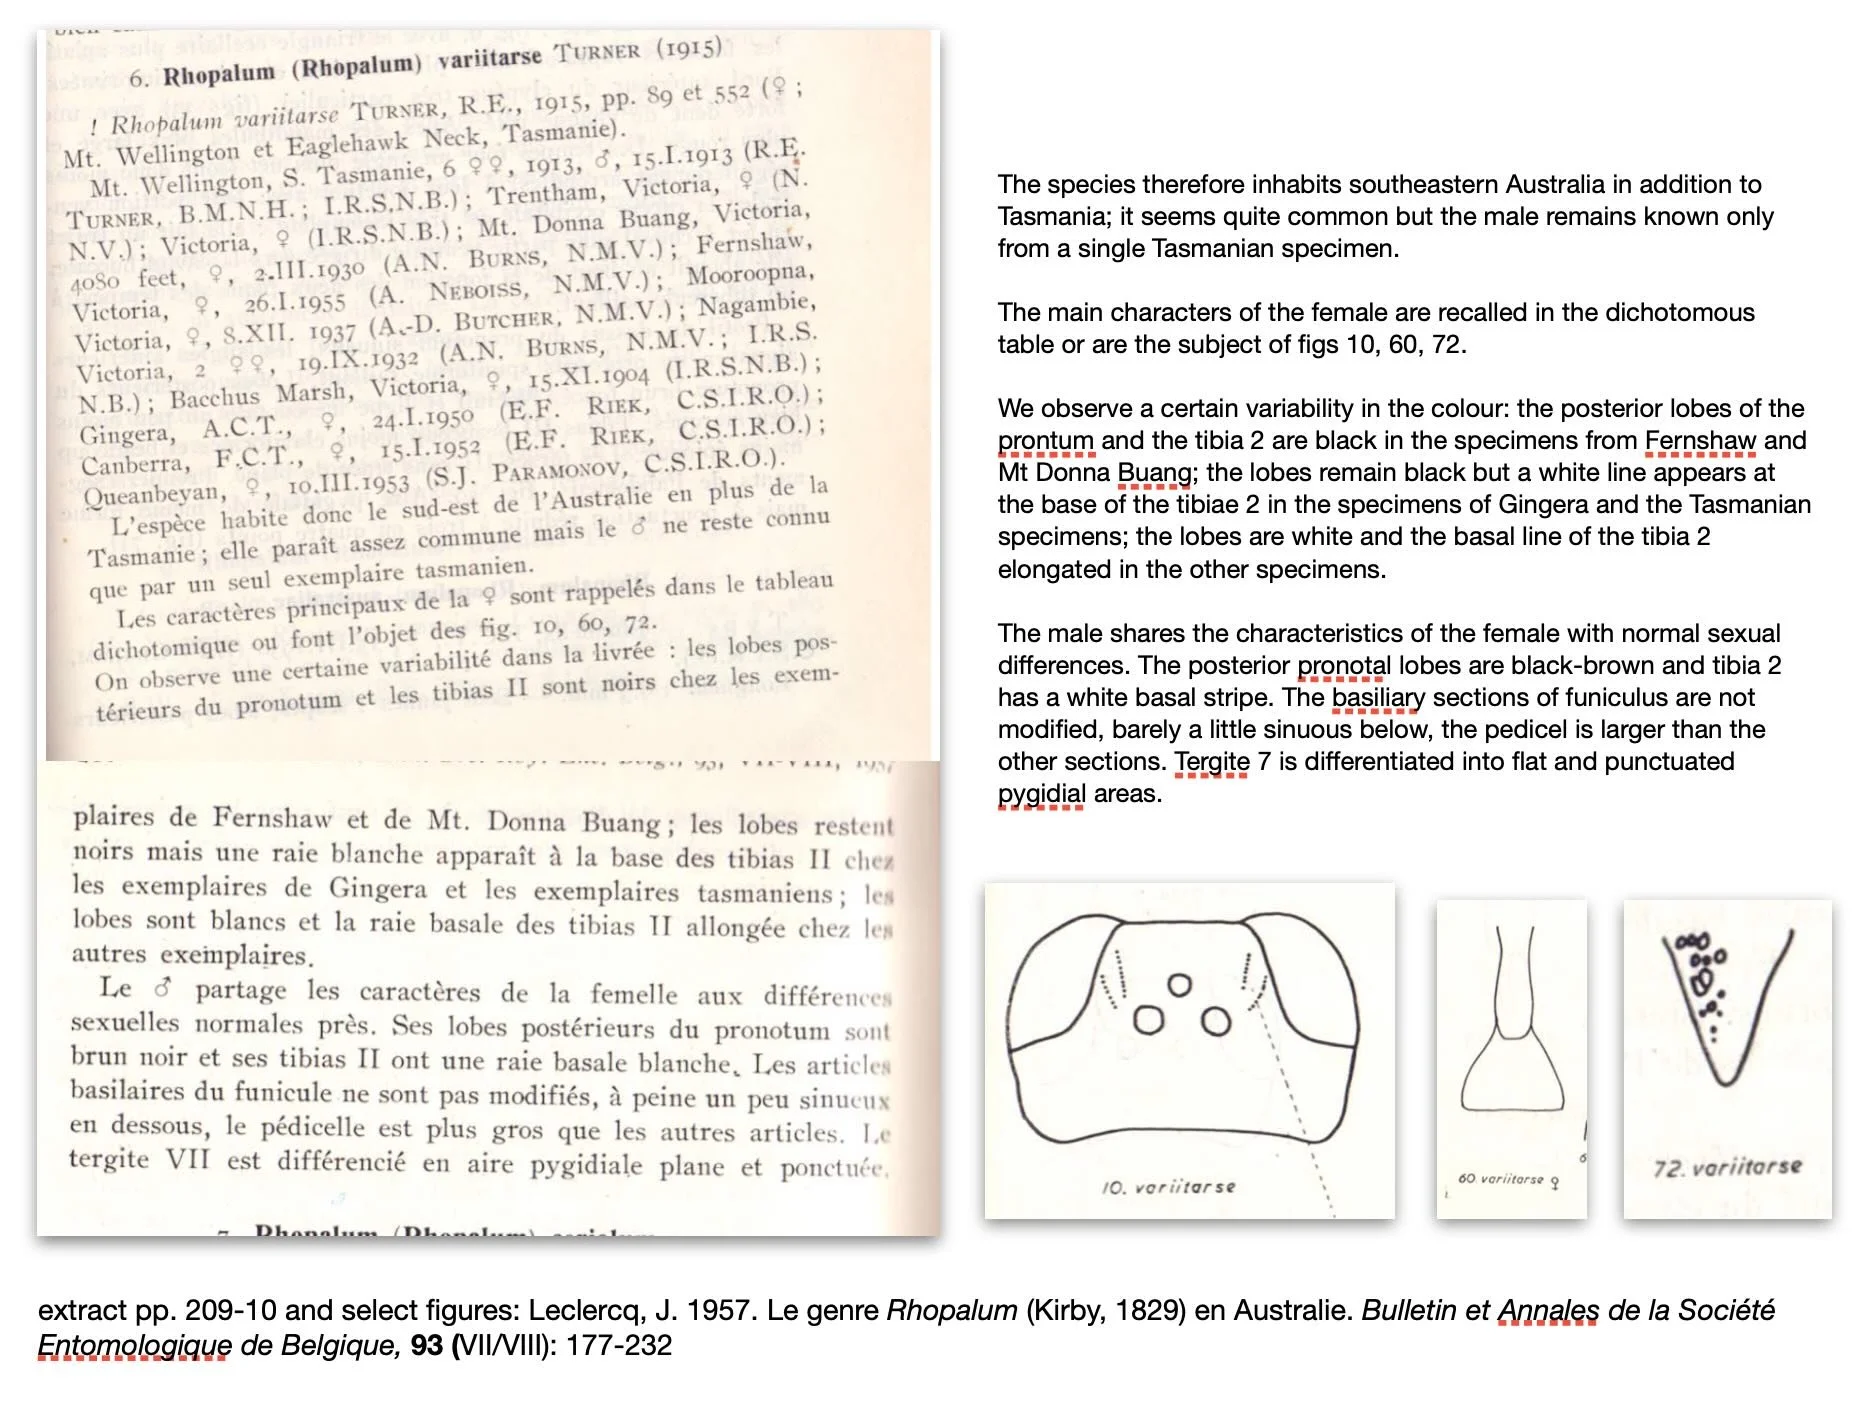 6. Rhopalum (Rhopalum) variitarse TURNER (1915)
! Rhopalum variitarse TURNER, R.E., 1915, pp. 89 et 552 (♀ ;
Mt. Wellington et Eaglehawk Neck, Tasmanie).
Mt. Wellington, S. Tasmanie, 6 ♀♀, 1913, ♂, 15.I.1913 (R.E.
TURNER, B.M.N.H. ; I.R.S.N.B.) ; Trentham, Victoria, ♀ (N.
N.V.) ; Victoria, ♀ (I.R.S.N.B.) ; Mt. Donna Buang, Victoria,
4080 feet, ♀, 2.III.1930 (A.N. BURNS, N.M.V.) ; Fernshaw,
Victoria, ♀, 26.I.1955 (A. NEBOISS, N.M.V.) ; Mooroopna,
Victoria, ♀, 8.XII. 1937 (A.-D. BUTCHER, N.M.V.) ; Nagambie,
Victoria, 2 ♀♀, 19.IX.1932 (A.N. BURNS, N.M.V. ; I.R.S.
N.B.) ; Bacchus Marsh, Victoria, ♀, 15.XI.1904 (I.R.S.N.B.) ;
Gingera, A.C.T., ♀, 24.I.1950 (E.F. RIEK, C.S.I.R.O.) ;
Canberra, F.C.T., ♀, 15.I.1952 (E.F. RIEK, C.S.I.R.O.) ;
Queanbeyan, ♀, 10.III.1953 (S.J. PARAMONOV, C.S.I.R.O.).
L'espèce habite donc le sud-est de l'Australie en plus de la
Tasmanie ; elle paraît assez commune mais le ♂ ne reste connu
que par un seul exemplaire tasmanien.
Les caractères principaux de la ♀ sont rappelés dans le tableau
dichotomique ou font l'objet des fig. 10, 60, 72.
On observe une certaine variabilité dans la livrée : les lobes pos-
térieurs du pronotum et les tibias II sont noirs chez les exem-
plaires de Fernshaw et de Mt. Donna Buang ; les lobes restent
noirs mais une raie blanche apparaît à la base des tibias II chez
les exemplaires de Gingera et les exemplaires tasmaniens ; les
lobes sont blancs et la raie basale des tibias II allongée chez les
autres exemplaires.
Le ♂ partage les caractères de la femelle aux différences
sexuelles normales près. Ses lobes postérieurs du pronotum sont
brun noir et ses tibias II ont une raie basale blanche. Les articles
basilaires du funicule ne sont pas modifiés, à peine un peu sinueux
en dessous, le pédicelle est plus gros que les autres articles. Le
tergite VII est différencié en aire pygidiale plane et ponctuée.
The species therefore inhabits southeastern Australia in addition to
Tasmania; it seems quite common but the male remains known only
from a single Tasmanian specimen.
The main characters of the female are recalled in the dichotomous
table or are the subject of figs 10, 60, 72.
We observe a certain variability in the colour: the posterior lobes of the
prontum and the tibia 2 are black in the specimens from Fernshaw and
Mt Donna Buang; the lobes remain black but a white line appears at
the base of the tibiae 2 in the specimens of Gingera and the Tasmanian
specimens; the lobes are white and the basal line of the tibia 2
elongated in the other specimens.
The male shares the characteristics of the female with normal sexual
differences. The posterior pronotal lobes are black-brown and tibia 2
has a white basal stripe. The basiliary sections of funiculus are not
modified, barely a little sinuous below, the pedicel is larger than the
other sections. Tergite 7 is differentiated into flat and punctuated
pygidial areas.
10. variitarse
60 variitarse ♀
72. variitarse
extract pp. 209-10 and select figures: Leclercq, J. 1957. Le genre Rhopalum (Kirby, 1829) en Australie. Bulletin et Annales de la Société
Entomologique de Belgique, 93 (VII/VIII): 177-232